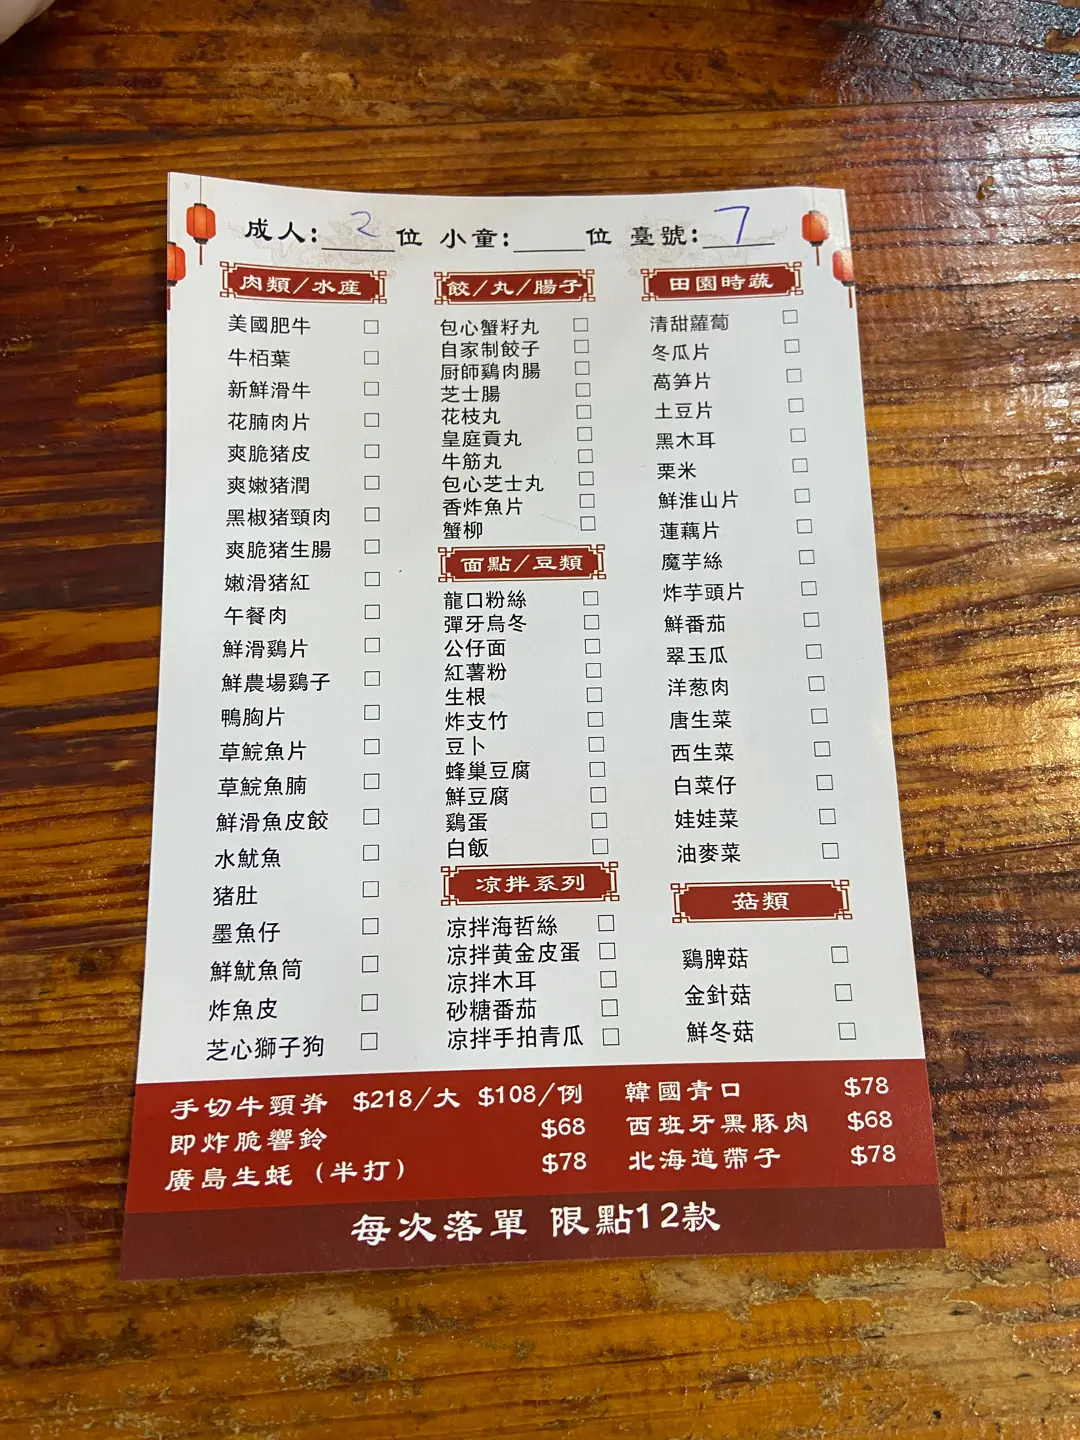 成人: 2 位 小童: 位 臺號: 7
肉類/水産
美國肥牛
牛栢葉
新鮮滑牛
花腩肉片
爽脆猪皮
爽嫩猪潤
黑椒猪頸肉
爽脆猪生腸
嫩滑猪紅
午餐肉
鮮滑鷄片
鮮農場鷄子
鴨胸片
草鯇魚片
草鯇魚腩
鮮滑魚皮餃
水魷魚
猪肚
墨魚仔
鮮魷魚筒
炸魚皮
芝心獅子狗
餃/丸/腸子
包心蟹籽丸
自家制餃子
厨師鷄肉腸
芝士腸
花枝丸
皇庭貢丸
牛筋丸
包心芝士丸
香炸魚片
蟹柳
面點/豆類
龍口粉絲
彈牙烏冬
公仔面
紅薯粉
生根
炸支竹
豆卜
蜂巢豆腐
鮮豆腐
鷄蛋
白飯
凉拌系列
凉拌海哲絲
凉拌黄金皮蛋
凉拌木耳
砂糖番茄
凉拌手拍青瓜
田園時蔬
清甜蘿蔔
冬瓜片
萵笋片
土豆片
黑木耳
栗米
鮮淮山片
蓮藕片
魔芋絲
炸芋頭片
鮮番茄
翠玉瓜
洋葱肉
唐生菜
西生菜
白菜仔
娃娃菜
油麥菜
菇類
鷄脾菇
金針菇
鮮冬菇
手切牛頸脊 $218/大 $108/例
即炸脆響鈴 $68
廣島生蚝（半打） $78
韓國青口 $78
西班牙黑豚肉 $68
北海道帶子 $78
每次落單 限點12款